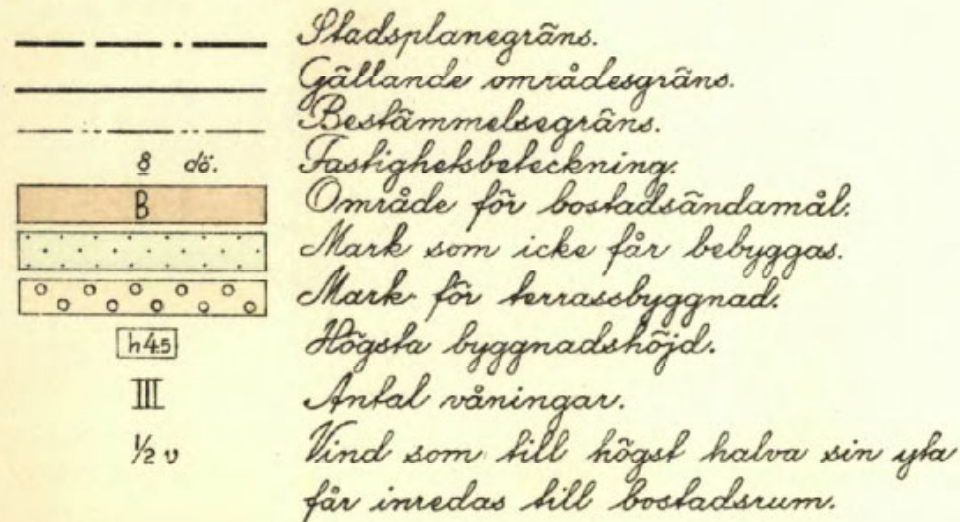 Stadsplanegräns.
Gällande områdesgräns.
Bestämmelsegräns.
8 dö. Fastighetsbeteckning.
B Område för bostadsändamål.
Mark som icke får bebyggas.
Mark för terrassbyggnad.
h4.5 Högsta byggnadshöjd.
III Antal våningar.
1/2 v Vind som till högst halva sin yta
får inredas till bostadsrum.